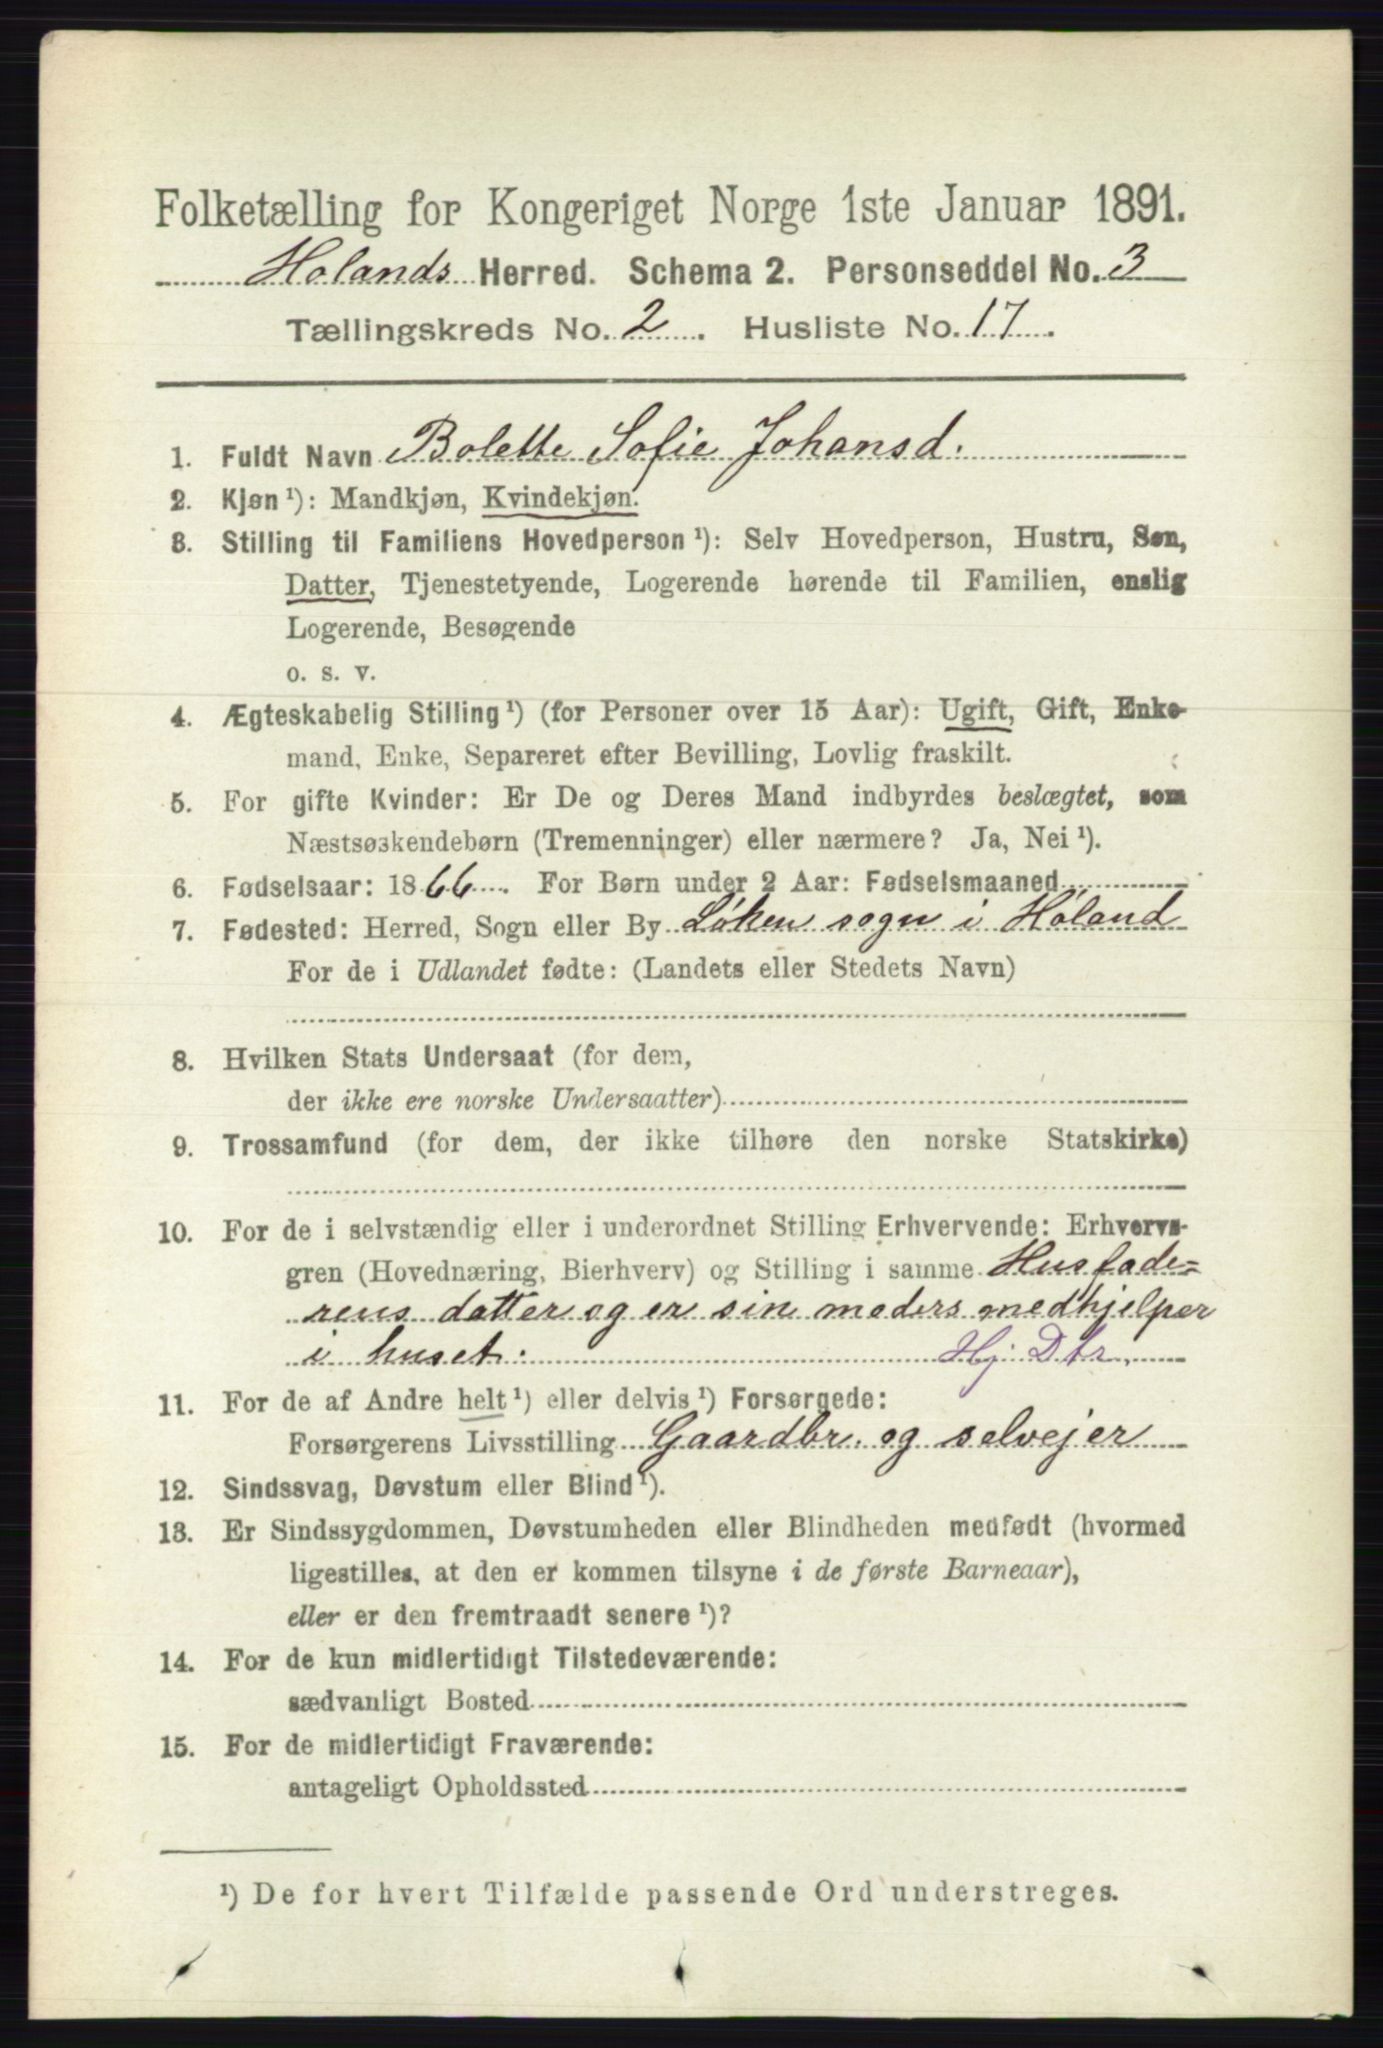 Folketælling for Kongeriget Norge 1ste Januar 1891.
Holands Herred. Schema 2. Personseddel No. 3
Tællingskreds No. 2. Husliste No. 17.
1. Fuldt Navn Bolette Sofie Johansd.
2. Kjøn ¹): Mandkjøn, Kvindekjøn.
3. Stilling til Familiens Hovedperson ¹): Selv Hovedperson, Hustru, Søn,
Datter, Tjenestetyende, Logerende hørende til Familien, enslig
Logerende, Besøgende
o. s. v.
4. Ægteskabelig Stilling ¹) (for Personer over 15 Aar): Ugift, Gift, Enke-
mand, Enke, Separeret efter Bevilling, Lovlig fraskilt.
5. For gifte Kvinder: Er De og Deres Mand indbyrdes beslægtet, som
Næstsøskendebørn (Tremenninger) eller nærmere? Ja, Nei ¹).
6. Fødselsaar: 1866. For Børn under 2 Aar: Fødselsmaaned
7. Fødested: Herred, Sogn eller By Løken sogn i Høland
For de i Udlandet fødte: (Landets eller Stedets Navn)
8. Hvilken Stats Undersaat (for dem,
der ikke ere norske Undersaatter)
9. Trossamfund (for dem, der ikke tilhøre den norske Statskirke)
10. For de i selvstændig eller i underordnet Stilling Erhvervende: Erhvervs-
gren (Hovednæring, Bierhverv) og Stilling i samme Husfade=
rens datter og er sin moders medhjelper
i huset. Hj. Dtr.
11. For de af Andre helt ¹) eller delvis ¹) Forsørgede:
Forsørgerens Livsstilling Gaardbr. og selvejer
12. Sindssvag, Døvstum eller Blind ¹).
13. Er Sindssygdommen, Døvstumheden eller Blindheden medfødt (hvormed
ligestilles, at den er kommen tilsyne i de første Barneaar),
eller er den fremtraadt senere ¹)?
14. For de kun midlertidigt Tilstedeværende:
sædvanligt Bosted
15. For de midlertidigt Fraværende:
antageligt Opholdssted
¹) De for hvert Tilfælde passende Ord understreges.